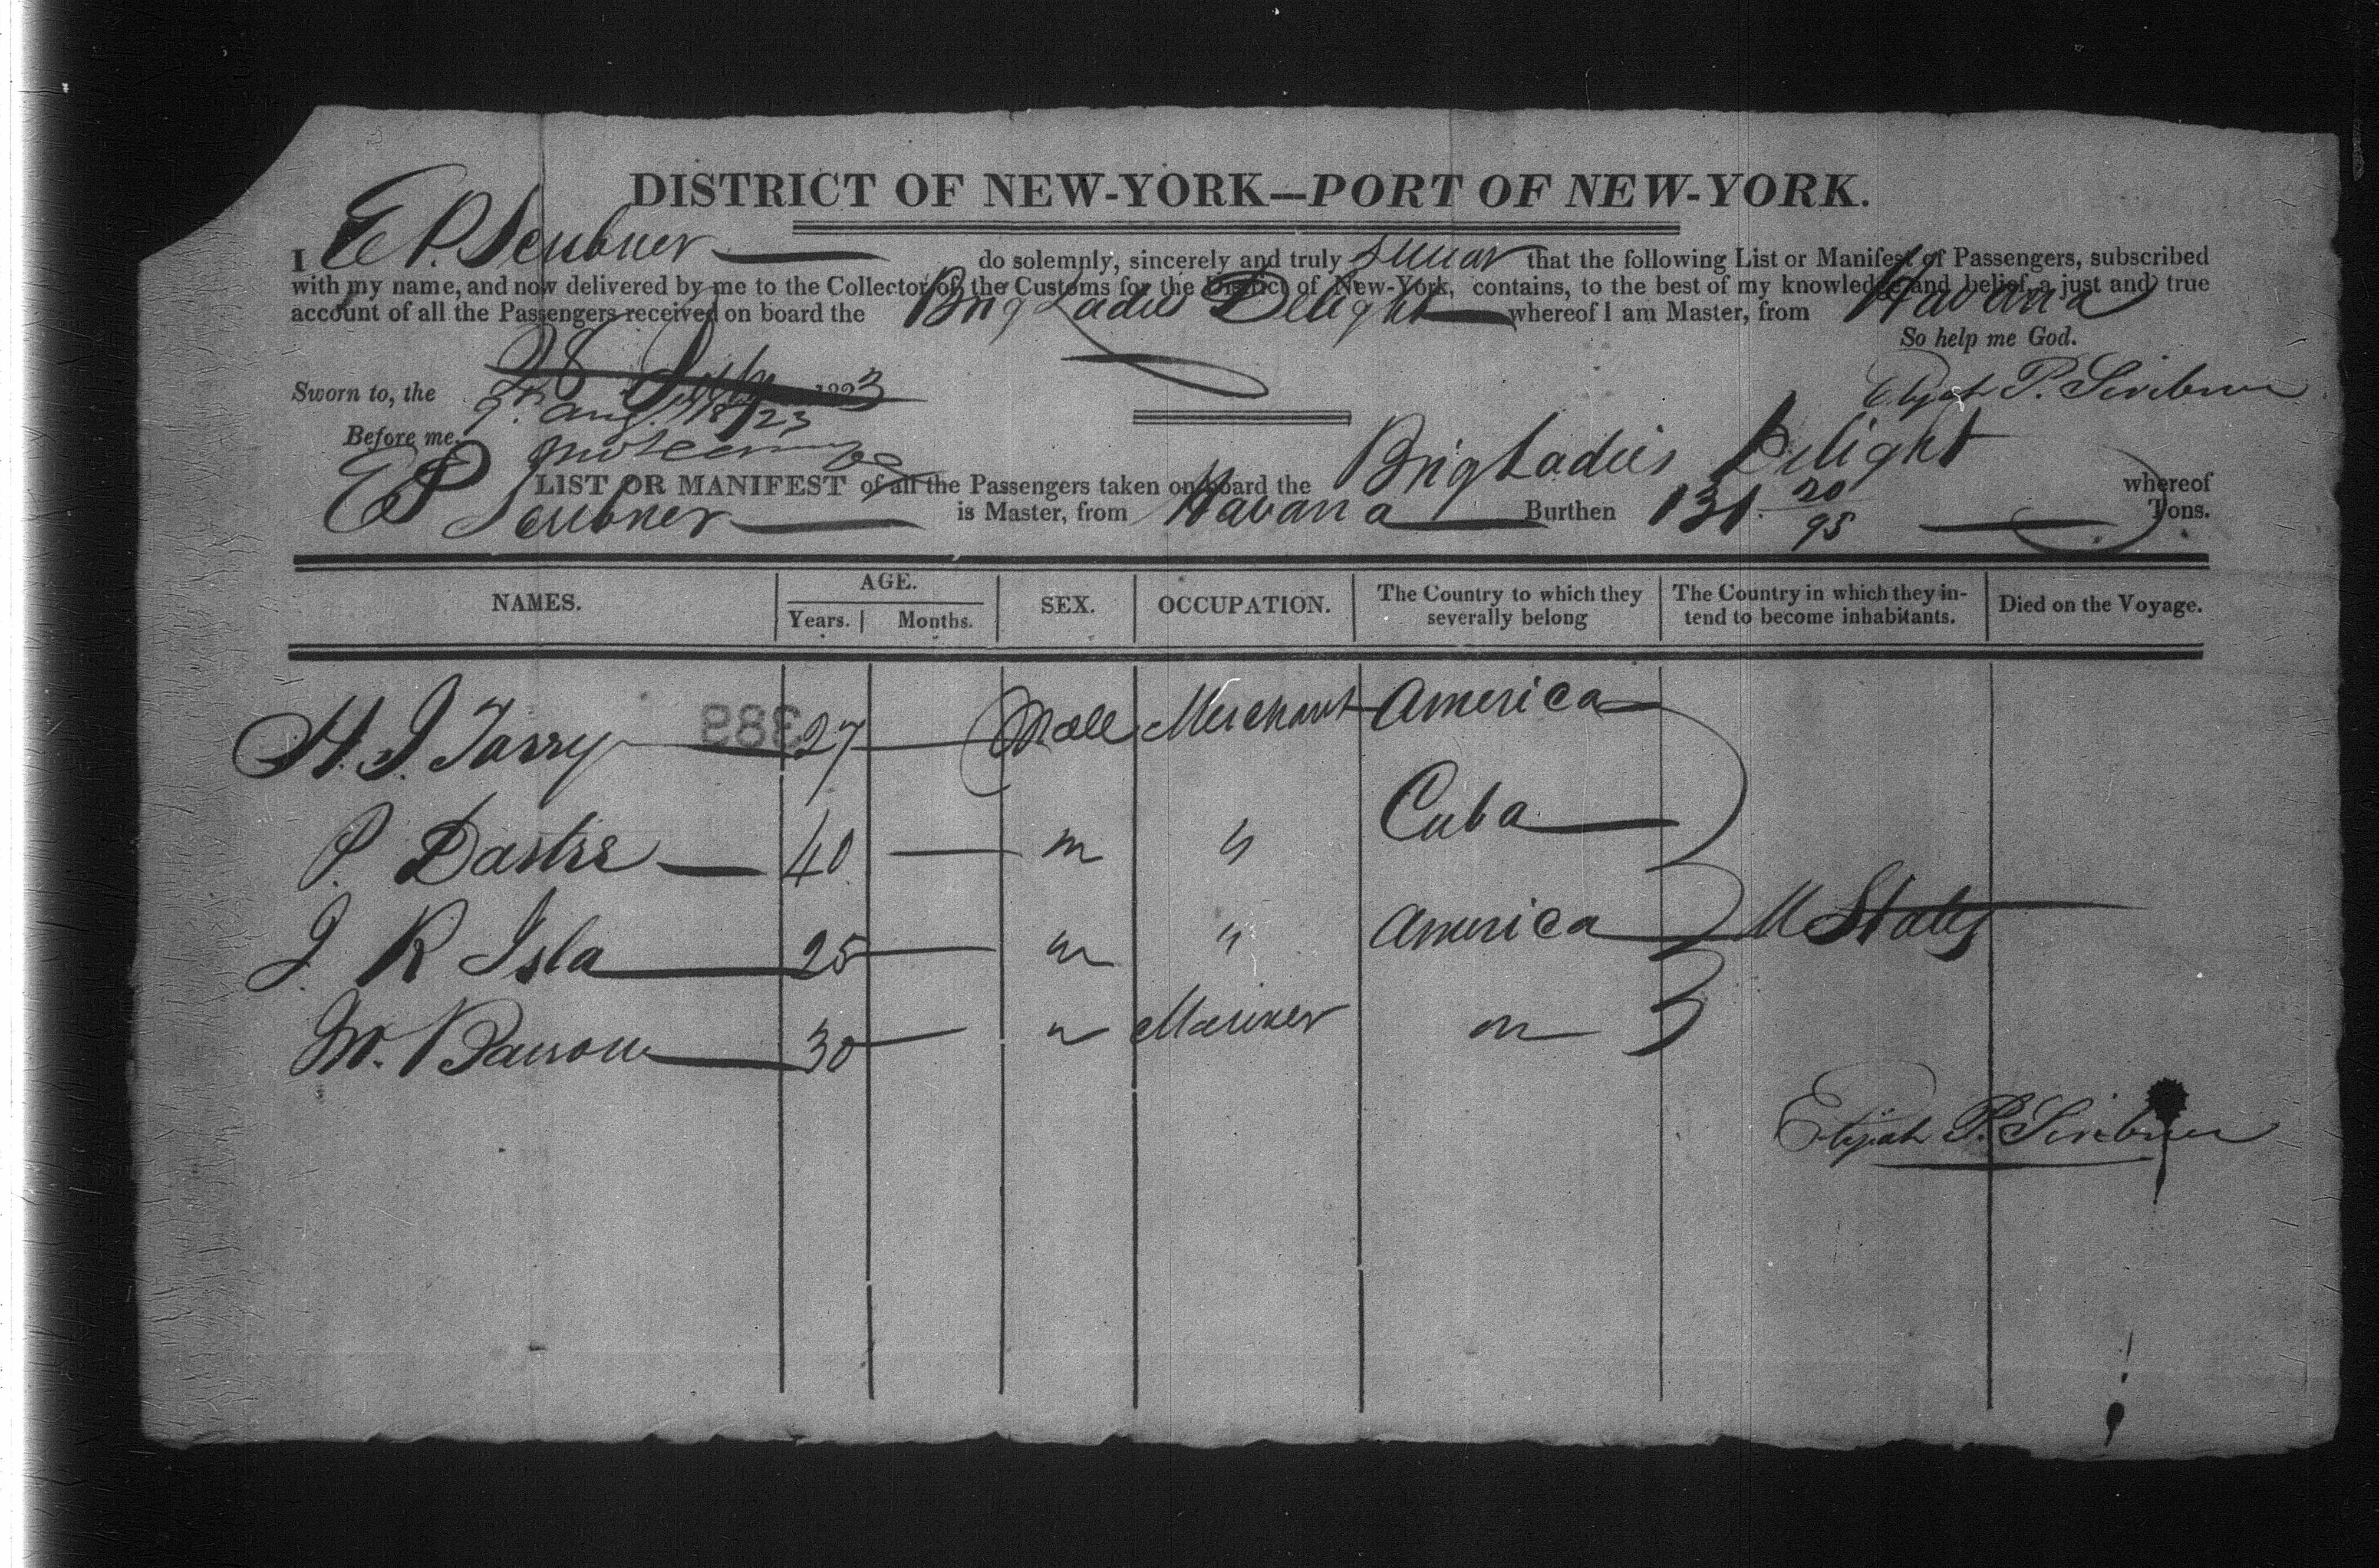 DISTRICT OF NEW-YORK—PORT OF NEW-YORK.
I E P. Scribner do solemnly, sincerely and truly swear that the following List or Manifest of Passengers, subscribed
with my name, and now delivered by me to the Collector of the Customs for the District of New-York, contains, to the best of my knowledge and belief, a just and true
account of all the Passengers received on board the Brig Ladies Delight whereof I am Master, from Havana
So help me God.
Sworn to, the 28 July 1823
9th Aug. 1823
Elijah P. Scribner
Before me,
LIST OR MANIFEST of all the Passengers taken on board the Brig Ladies Delight whereof
E P Scribner is Master, from Havana Burthen 131 20/95 Tons.
NAMES. AGE. Years. Months. SEX. OCCUPATION. The Country to which they severally belong The Country in which they intend to become inhabitants. Died on the Voyage.
383
H. J. Tarry 27 Male Merchant America
P. Dastre 40 " " Cuba
J. R Isla 25 " " America U States
M. 30 " Mariner "
Elijah P. Scribner